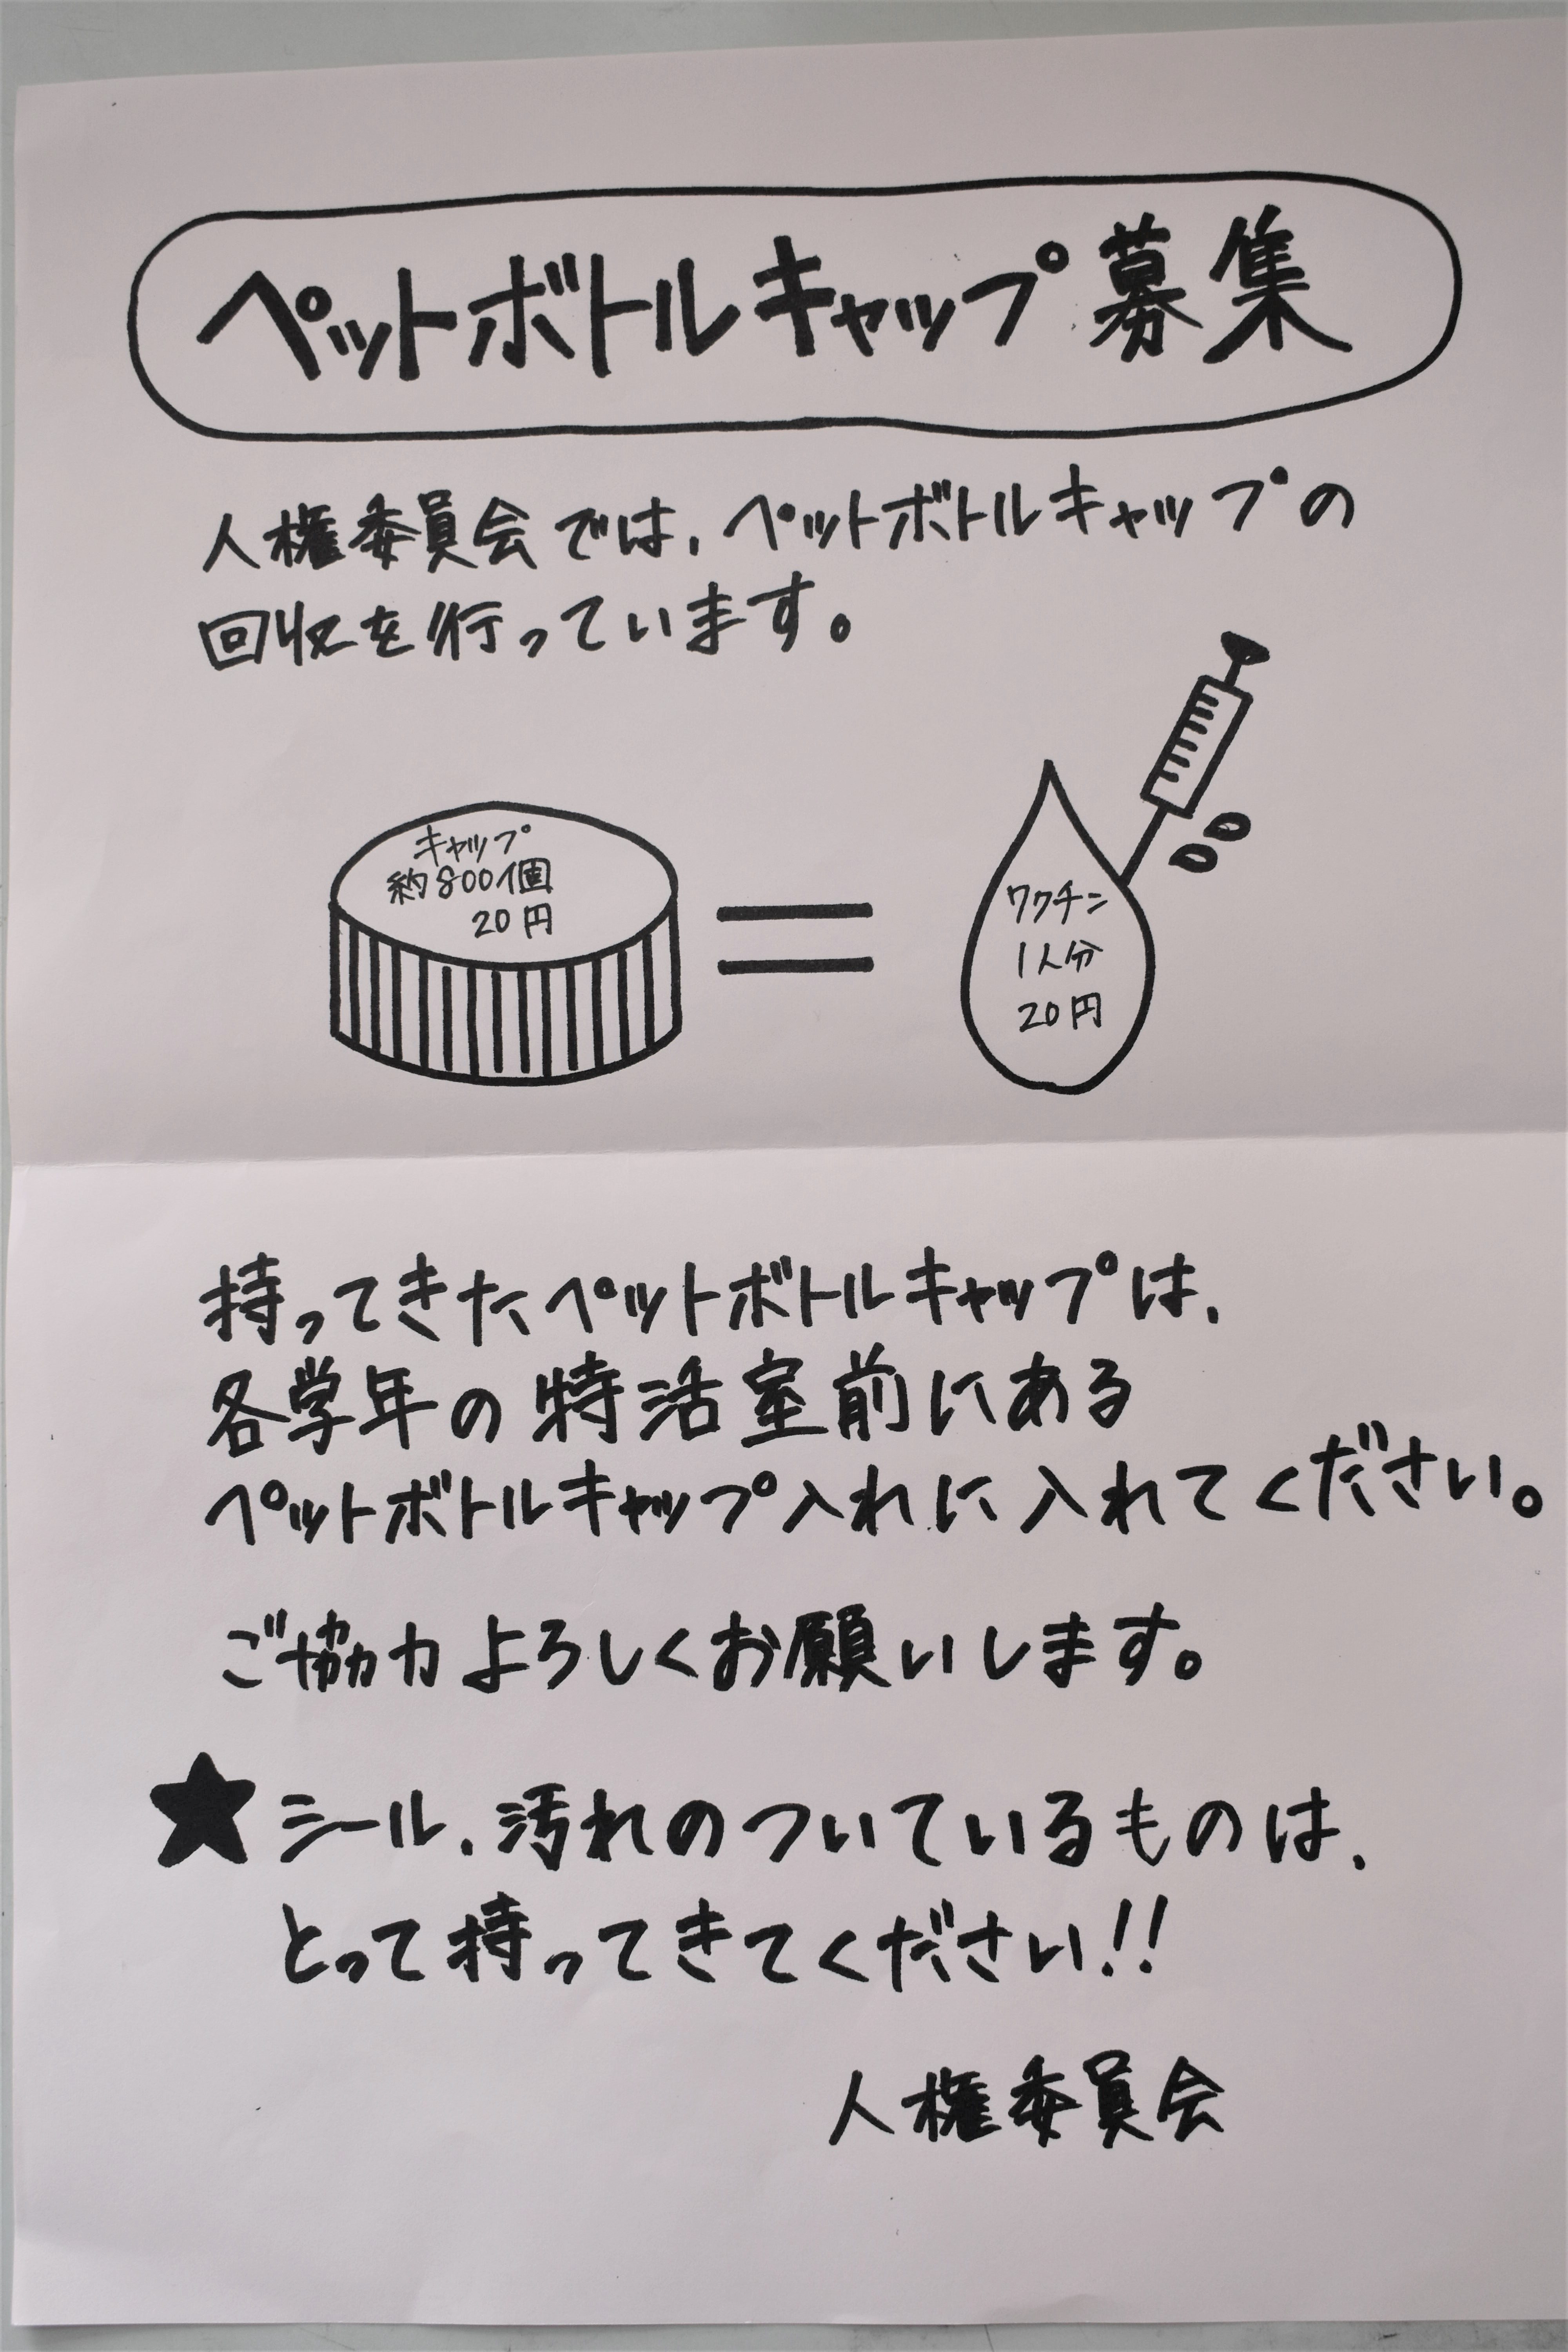 ペットボトルキャップ募集
人権委員会では、ペットボトルキャップの
回収を行っています。
キャップ
約800個
20円
ワクチン
1人分
20円
持ってきたペットボトルキャップは、
各学年の特活室前にある
ペットボトルキャップ入れに入れてください。
ご協力よろしくお願いします。
★シール、汚れのついているものは、
とって持ってきてください!!
人権委員会